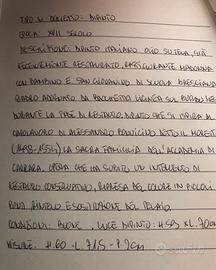 TIPO DI OGGETTO: DIPINTO
EPOCA XVII SECOLO
DESCRIZIONE: DIPINTO ITALIANO OLIO SU TELA, GIÀ
RECENTEMENTE RESTAURATO, RAFFIGURANTE MADONNA
CON BAMBINO E SAN GIOVANNINO DI SCUOLA BRESCIANA
QUADRO ADORNATO DA BACCHETTA LIGNEA SUL BORDO
DURANTE LA FASE DI RESTAURO. DIPINTO CHE SI ISPIRA AL
CAPOLAVORO DI ALESSANDRO BONVICINO DETTO IL MORETTO
(1498-1554) LA SACRA FAMIGLIA DELL'ACCADEMIA DI
CARRARA. OPERA CHE HA SUBITO UN INTERVENTO DI
RESTAURO CONSERVATIVO, RIPRESA DEL COLORE IN PICCOLI
PUNTI, RINTELO E SOSTITUZIONE DEL TELAIO.
CONDIZIONI: BUONE, LUCE DIPINTO: H 58,5 X L. 70CM
MISURE: H.60 - L 71,5 - P. 2CM
subito